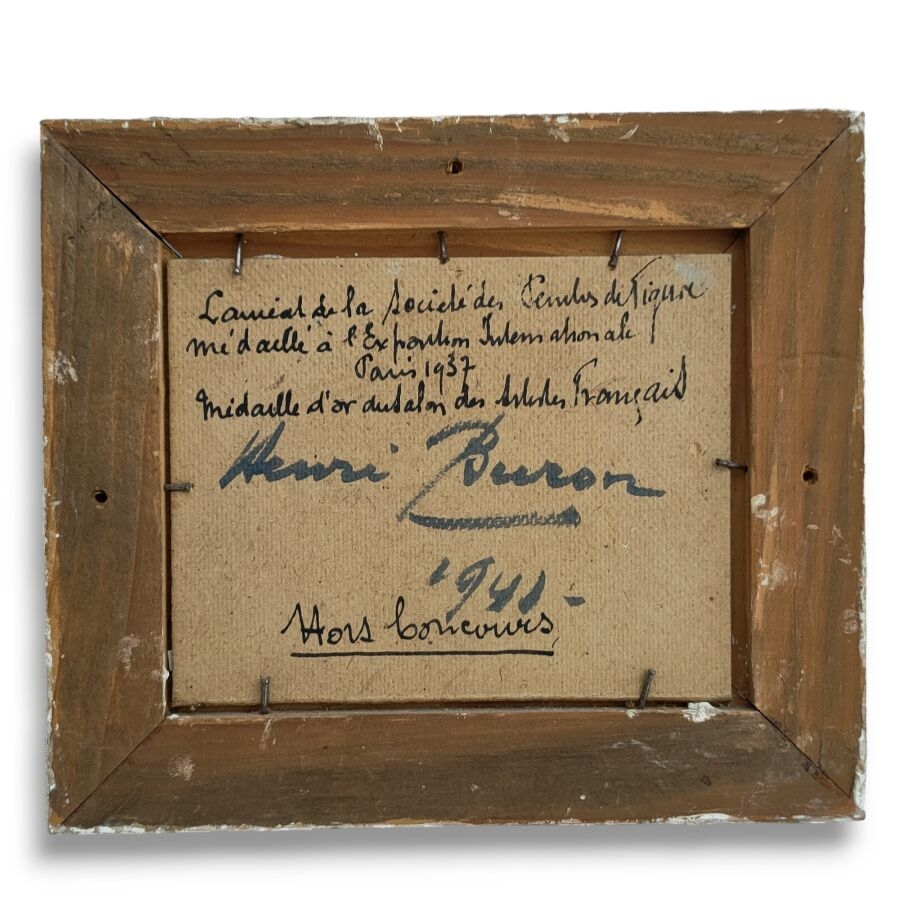 Lauréat de la Société des Peintres de Figure
médaillé à l'Exposition Internationale
Paris 1937
Médaille d'or du Salon des Artistes Français
Henri Buron
1941-
Hors Concours